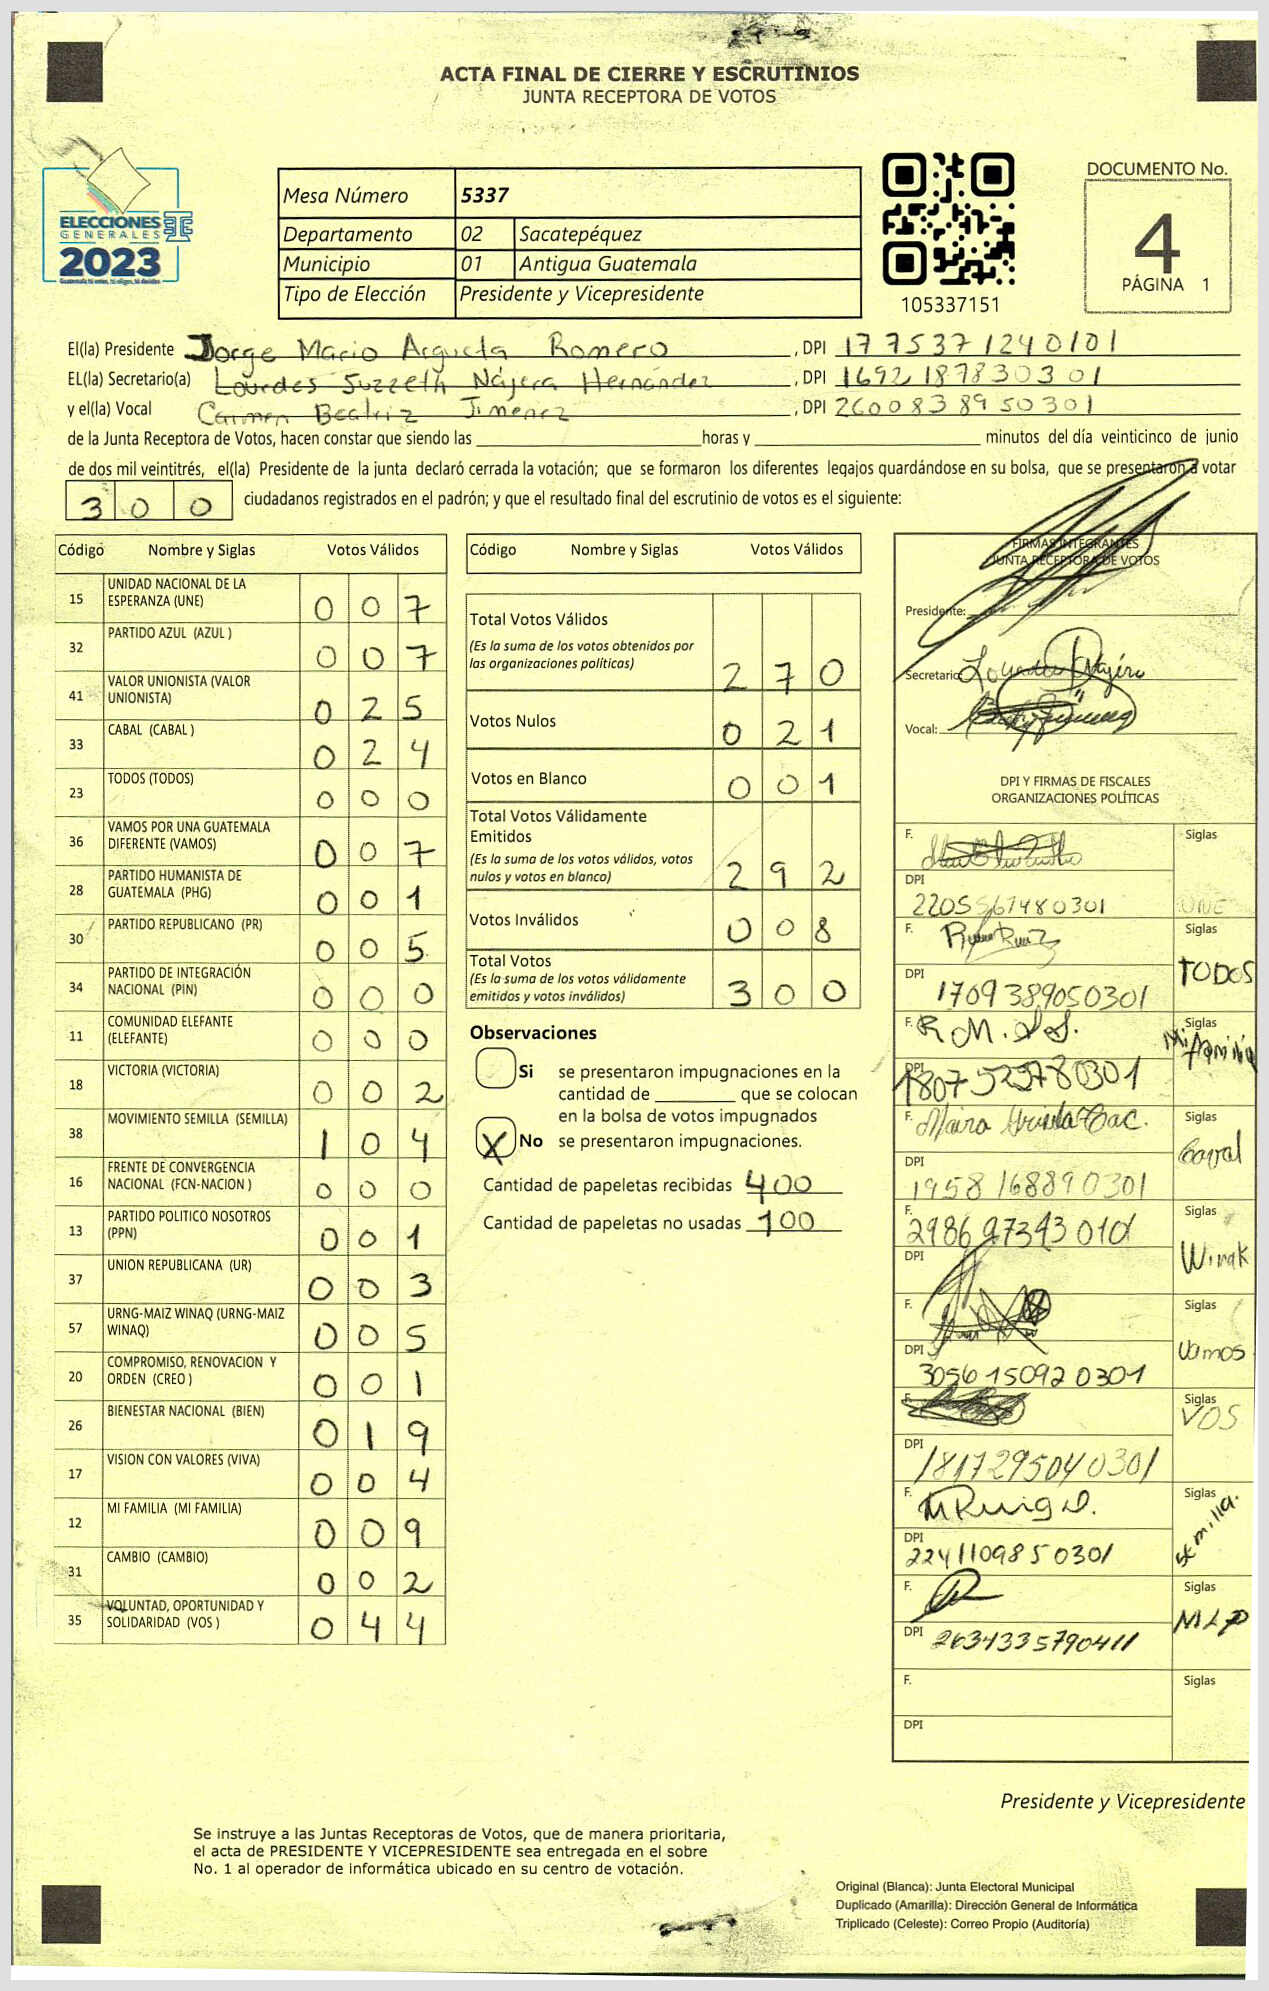 ACTA FINAL DE CIERRE Y ESCRUTINIOS
JUNTA RECEPTORA DE VOTOS
ELECCIONES
GENERALES
2023
Mesa Número 5337
Departamento 02 Sacatepéquez
Municipio 01 Antigua Guatemala
Tipo de Elección Presidente y Vicepresidente
105337151
DOCUMENTO No.
4
PÁGINA 1
El(la) Presidente Jorge Mario Argueta Romero, DPI 1775371240101
EL(la) Secretario(a) Lourdes Suzzeth Nájera Hernández, DPI 1692187830301
y el(la) Vocal Carmen Beatriz Jimenez, DPI 2600838950301
de la Junta Receptora de Votos, hacen constar que siendo las horas y minutos del día veinticinco de junio
de dos mil veintitrés, el(la) Presidente de la junta declaró cerrada la votación; que se formaron los diferentes legajos guardándose en su bolsa, que se presentaron a votar
300 ciudadanos registrados en el padrón; y que el resultado final del escrutinio de votos es el siguiente:
Código Nombre y Siglas Votos Válidos
15 UNIDAD NACIONAL DE LA
ESPERANZA (UNE) 007
32 PARTIDO AZUL (AZUL ) 007
41 VALOR UNIONISTA (VALOR
UNIONISTA) 025
33 CABAL (CABAL ) 024
23 TODOS (TODOS) 000
36 VAMOS POR UNA GUATEMALA
DIFERENTE (VAMOS) 007
28 PARTIDO HUMANISTA DE
GUATEMALA (PHG) 001
30 PARTIDO REPUBLICANO (PR) 005
34 PARTIDO DE INTEGRACIÓN
NACIONAL (PIN) 000
11 COMUNIDAD ELEFANTE
(ELEFANTE) 000
18 VICTORIA (VICTORIA) 002
38 MOVIMIENTO SEMILLA (SEMILLA) 104
16 FRENTE DE CONVERGENCIA
NACIONAL (FCN-NACION ) 000
13 PARTIDO POLITICO NOSOTROS
(PPN) 001
37 UNION REPUBLICANA (UR) 003
57 URNG-MAIZ WINAQ (URNG-MAIZ
WINAQ) 005
20 COMPROMISO, RENOVACION Y
ORDEN (CREO ) 001
26 BIENESTAR NACIONAL (BIEN) 019
17 VISION CON VALORES (VIVA) 004
12 MI FAMILIA (MI FAMILIA) 009
31 CAMBIO (CAMBIO) 002
35 VOLUNTAD, OPORTUNIDAD Y
SOLIDARIDAD (VOS ) 044
Código Nombre y Siglas Votos Válidos
Total Votos Válidos
(Es la suma de los votos obtenidos por
las organizaciones políticas) 270
Votos Nulos 021
Votos en Blanco 001
Total Votos Válidamente
Emitidos
(Es la suma de los votos válidos, votos
nulos y votos en blanco) 292
Votos Inválidos 008
Total Votos
(Es la suma de los votos válidamente
emitidos y votos inválidos) 300
Observaciones
Si se presentaron impugnaciones en la
cantidad de que se colocan
en la bolsa de votos impugnados
X No se presentaron impugnaciones.
Cantidad de papeletas recibidas 400
Cantidad de papeletas no usadas 100
FIRMAS INTEGRANTES
JUNTA RECEPTORA DE VOTOS
Presidente:
Secretario: Lourdes Nájera
Vocal:
DPI Y FIRMAS DE FISCALES
ORGANIZACIONES POLÍTICAS
F. Siglas
DPI
2205567480301 UNE
F. Siglas
TODOS
DPI
1709389050301
F. R.M. Siglas
Mi familia
DPI
1807525780301
F. Siglas
DPI
1958168890301
F. Siglas
DPI Winak
F. Siglas
Vamos
DPI
3056150920301
F. Siglas
VOS
DPI
1817295040301
F. Siglas
semilla.
DPI
2241109850301
F. Siglas
MLP
DPI
2634335790411
F. Siglas
DPI
Presidente y Vicepresidente
Se instruye a las Juntas Receptoras de Votos, que de manera prioritaria,
el acta de PRESIDENTE Y VICEPRESIDENTE sea entregada en el sobre
No. 1 al operador de informática ubicado en su centro de votación.
Original (Blanca): Junta Electoral Municipal
Duplicado (Amarilla): Dirección General de Informática
Triplicado (Celeste): Correo Propio (Auditoría)